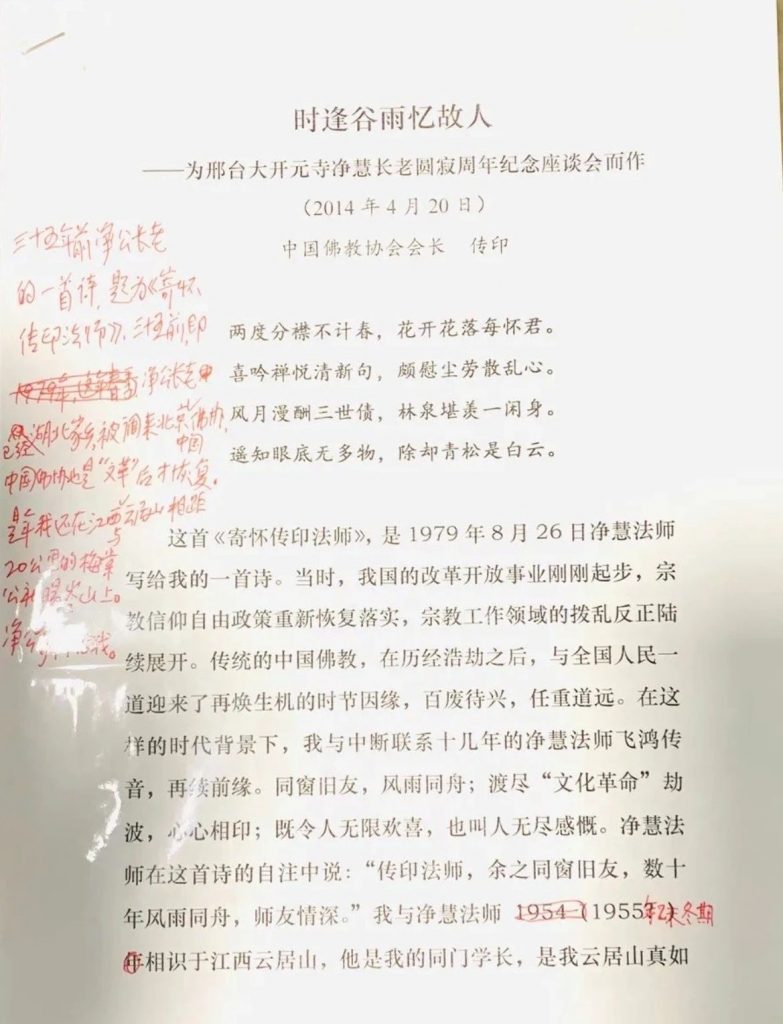 时逢谷雨忆故人
——为邢台大开元寺净慧长老圆寂周年纪念座谈会而作
（2014年4月20日）
中国佛教协会会长 传印
三十五年前净公长老
的一首诗，题为《寄怀
传印法师》，三十五前，即
1979年
净公长老
已经
湖北家乡被调来北京佛协，
中国
中国佛协也是“文革”后才恢复。
是年我还在江西云居山相距
与
20公里的梅棠
公社
山上。
净公
我。
两度分襟不计春，花开花落每怀君。
喜吟禅悦清新句，颇慰尘劳散乱心。
风月漫酬三世债，林泉堪羡一闲身。
遥知眼底无多物，除却青松是白云。
这首《寄怀传印法师》，是1979年8月26日净慧法师
写给我的一首诗。当时，我国的改革开放事业刚刚起步，宗
教信仰自由政策重新恢复落实，宗教工作领域的拨乱反正陆
续展开。传统的中国佛教，在历经浩劫之后，与全国人民一
道迎来了再焕生机的时节因缘，百废待兴，任重道远。在这
样的时代背景下，我与中断联系十几年的净慧法师飞鸿传
音，再续前缘。同窗旧友，风雨同舟；渡尽“文化革命”劫
波，心心相印；既令人无限欢喜，也叫人无尽感慨。净慧法
师在这首诗的自注中说：“传印法师，余之同窗旧友，数十
年风雨同舟，师友情深。”我与净慧法师 1954（1955年冬期
年相识于江西云居山，他是我的同门学长，是我云居山真如